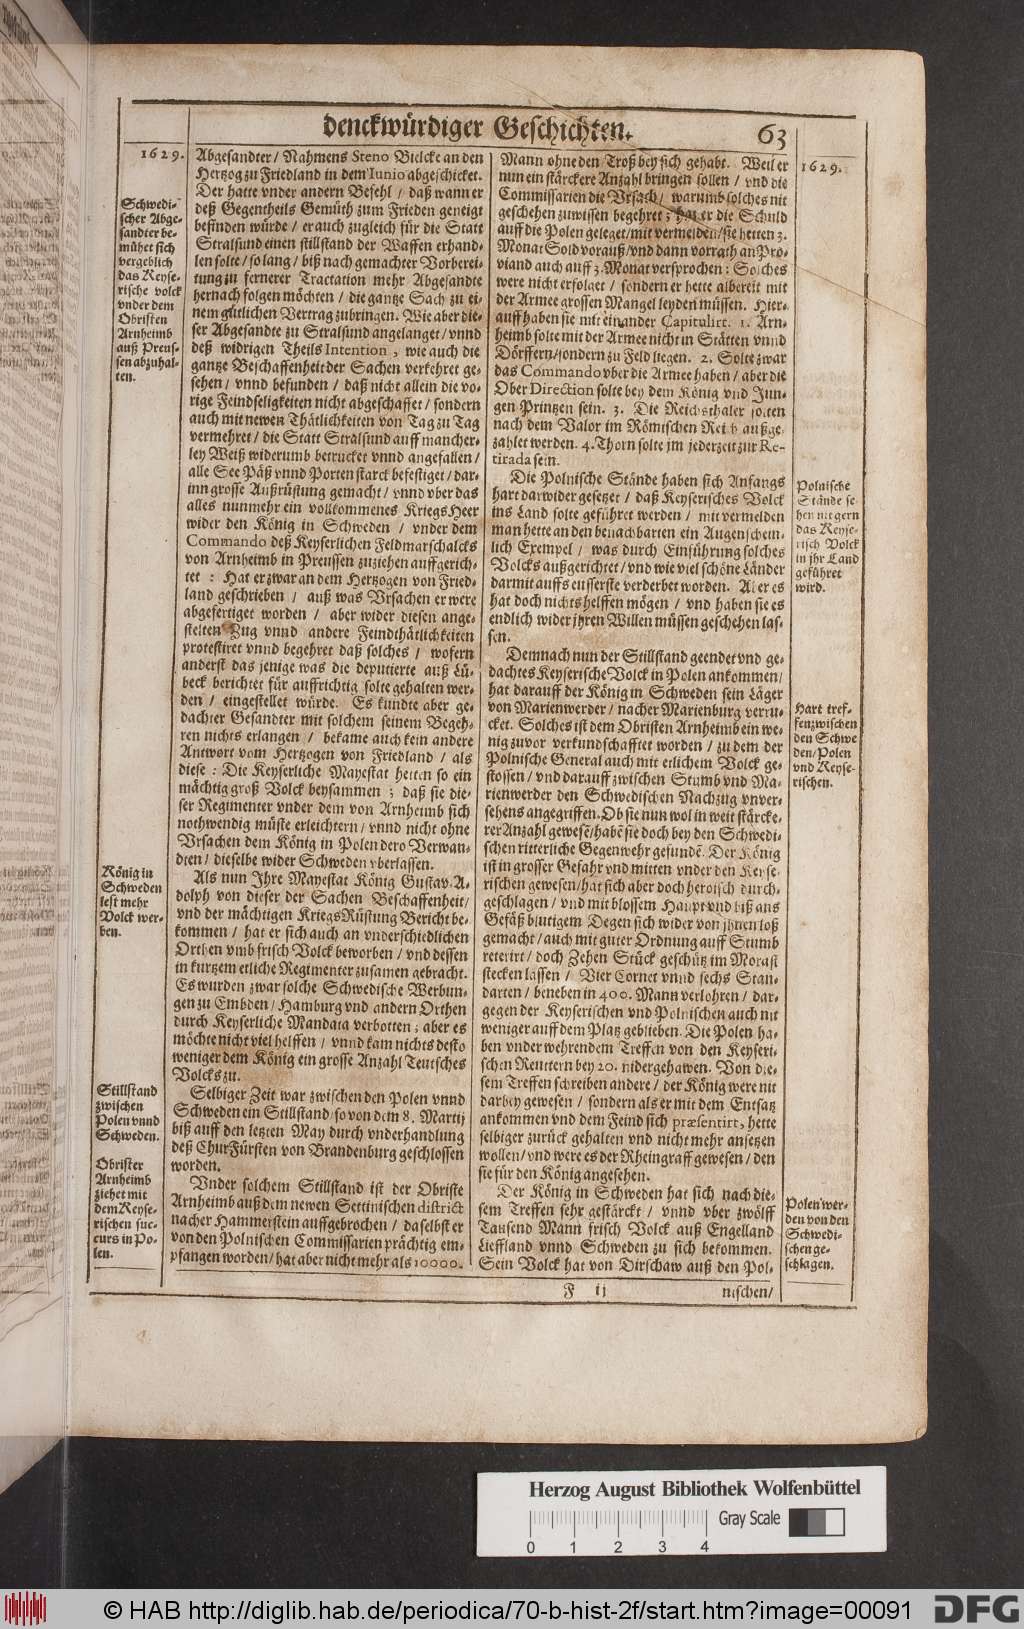 denckwürdiger Geschichten.
63
1629.
Schwedi-
scher Abge-
sandter be-
mühet sich
vergeblich
das Keyse-
rische volck
vnder dem
Obristen
Arnheimb
auß Preus-
sen abzuhal-
ten.
König in
Schweden
lest mehr
Volck wer-
ben.
Stillstand
zwischen
Polen vnnd
Schweden.
Obrister
Arnheimb
ziehet mit
dem Keyse-
rischen suc-
curs in Po-
len.
Abgesandter / Nahmens Steno Bielcke an den
Hertzog zu Friedland in dem Iunio abgeschicket.
Der hatte vnder andern Befehl / daß wann er
deß Gegentheils Gemüth zum Frieden geneigt
befinden würde / er auch zugleich für die Statt
Stralsund einen stillstand der Waffen erhand-
len solte / so lang / biß nach gemachter Vorberei-
tung zu fernerer Tractation mehr Abgesandte
hernach folgen möchten / die gantze Sach zu ei-
nem gütlichen Vertrag zubringen. Wie aber die-
ser Abgesandte zu Stralsund angelanget / vnnd
deß widrigen Theils Intention, wie auch die
gantze Beschaffenheit der Sachen verkehret ge-
sehen / vnnd befunden / daß nicht allein die vo-
rige Feindseligkeiten nicht abgeschaffet / sondern
auch mit newen Thätlichkeiten von Tag zu Tag
vermehret / die Statt Stralsund auff mancher-
ley Weiß widerumb betrucket vnnd angefallen /
alle See Päß vnnd Porten starck befestiget / dar-
inn grosse Außrüstung gemacht / vnnd vber das
alles nunmehr ein vollkommenes KriegsHeer
wider den König in Schweden / vnder dem
Commando deß Keyserlichen Feldmarschalcks
von Arnheimb in Preussen zuziehen auffgerich-
tet : Hat er zwar an dem Hertzogen von Fried-
land geschrieben / auß was Vrsachen er were
abgefertiget worden / aber wider diesen ange-
stelten Zug vnnd andere Feindthätlichkeiten
protestiret vnnd begehret daß solches / wofern
anderst das jenige was die deputierte auß Lü-
beck berichtet für auffrichtig solte gehalten wer-
den / eingestellet würde. Es kundte aber ge-
dachter Gesandter mit solchem seinem Begeh-
ren nichts erlangen / bekame auch kein andere
Antwort vom Hertzogen von Friedland / als
diese : Die Keyserliche Mayestat hetten so ein
mächtig groß Volck beysammen ; daß sie die-
ser Regimenter vnder dem von Arnheimb sich
nothwendig müste erleichtern / vnnd nicht ohne
Vrsachen dem König in Polen dero Verwan-
dten / dieselbe wider Schweden vberlassen.
Als nun Ihre Mayestat König Gustav. A-
dolph von dieser der Sachen Beschaffenheit /
vnd der mächtigen KriegsRüstung Bericht be-
kommen / hat er sich auch an vnderschiedlichen
Orthen vmb frisch Volck beworben / vnd dessen
in kurtzem etliche Regimenter zusamen gebracht.
Es wurden zwar solche Schwedische Werbun-
gen zu Embden / Hamburg vnd andern Orthen
durch Keyserliche Mandata verbotten ; aber es
möchte nicht viel helffen / vnnd kam nichts desto
weniger dem König ein grosse Anzahl Teutsches
Volcks zu.
Selbiger Zeit war zwischen den Polen vnnd
Schweden ein Stillstand / so von dem 8. Martij
biß auff den letzten May durch vnderhandlung
deß ChurFürsten von Brandenburg geschlossen
worden.
Vnder solchem Stillstand ist der Obriste
Arnheimb auß dem newen Settinischen district
nacher Hammerstein auffgebrochen / daselbst er
von den Polnischen Commissarien prächtig em-
pfangen worden / hat aber nicht mehr als 10000.
Mann ohne den Troß bey sich gehabt. Weil er
nun ein stärckere Anzahl bringen sollen / vnd die
Commissarien die Vrsach / warumb solches nit
geschehen zuwissen begehret ; hat er die Schuld
auff die Polen geleget / mit vermelden / sie hetten 3.
Monat Sold vorauß / vnd dann vorrath an Pro-
viand auch auff 3. Monat versprochen : Solches
were nicht erfolget / sondern er hette albereit mit
der Armee grossen Mangel leyden müssen. Hier-
auff haben sie mit einander Capitulirt. 1. Arn-
heimb solte mit der Armee nicht in Stätten vnnd
Dörffern / sondern zu Feld liegen. 2. Solte zwar
das Commando vber die Armee haben / aber die
Ober Direction solte bey dem König vnd Jun-
gen Printzen sein. 3. Die Reichsthaler solten
nach dem Valor im Römischen Reich außge-
zahlet werden. 4. Thorn solte im jederzeit zur Re-
tirada sein.
Die Polnische Stände haben sich Anfangs
hart darwider gesetzet / daß Keyserisches Volck
ins Land solte geführet werden / mit vermelden
man hette an den benachbarten ein Augenschein-
lich Exempel / was durch Einführung solches
Volcks außgerichtet / vnd wie viel schöne Länder
darmit auffs eusserste verderbet worden. Aber es
hat doch nichts helffen mögen / vnd haben sie es
endlich wider ihren Willen müssen geschehen las-
sen.
Demnach nun der Stillstand geendet vnd ge-
dachtes Keyserische Volck in Polen ankommen /
hat darauff der König in Schweden sein Läger
von Marienwerder / nacher Marienburg verru-
cket. Solches ist dem Obristen Arnheimb ein we-
nig zuvor verkundschafftet worden / zu dem der
Polnische General auch mit etlichem Volck ge-
stossen / vnd darauff zwischen Stumb vnd Ma-
rienwerder den Schwedischen Nachzug vnver-
sehens angegriffen. Ob sie nun wol in weit stärcke-
rer Anzahl gewesē / habē sie doch bey den Schwedi-
schen ritterliche Gegenwehr gefundē. Der König
ist in grosser Gefahr vnd mitten vnder den Keyse-
rischen gewesen / hat sich aber doch heroisch durch-
geschlagen / vnd mit blossem Haupt vnd biß ans
Gefäß blutigem Degen sich wider von jhnen loß
gemacht / auch mit guter Ordnung auff Stumb
reterirt / doch Zehen Stück geschütz im Morast
stecken lassen / Vier Cornet vnnd sechs Stan-
darten / beneben in 400. Mann verlohren / dar-
gegen der Keyserischen vnd Polnischen auch nit
weniger auff dem Platz geblieben. Die Polen ha-
ben vnder wehrendem Treffen von den Keyseri-
schen Reuttern bey 20. nidergehawen. Von die-
sem Treffen schreiben andere / der König were nit
darbey gewesen / sondern als er mit dem Entsatz
ankommen vnd dem Feind sich præsentirt, hette
selbiger zurück gehalten vnd nicht mehr ansetzen
wollen / vnd were es der Rheingraff gewesen / den
sie für den König angesehen.
Der König in Schweden hat sich nach die-
sem Treffen sehr gestärckt / vnnd vber zwölff
Tausend Mann frisch Volck auß Engelland
Lieffland vnnd Schweden zu sich bekommen.
Sein Volck hat von Dirschaw auß den Pol-
1629.
Polnische
Stände se-
hen nit gern
das Keyse-
risch Volck
in jhr Land
geführet
wird.
Hart tref-
fen zwischen
den Schwe
den / Polen
vnd Keyse-
rischen.
Polen wer-
den von den
Schwedi-
schen ge-
schlagen.
F ij
nischen /
Herzog August Bibliothek Wolfenbüttel
Gray Scale
0 1 2 3 4
© HAB http://diglib.hab.de/periodica/70-b-hist-2f/start.htm?image=00091
DFG